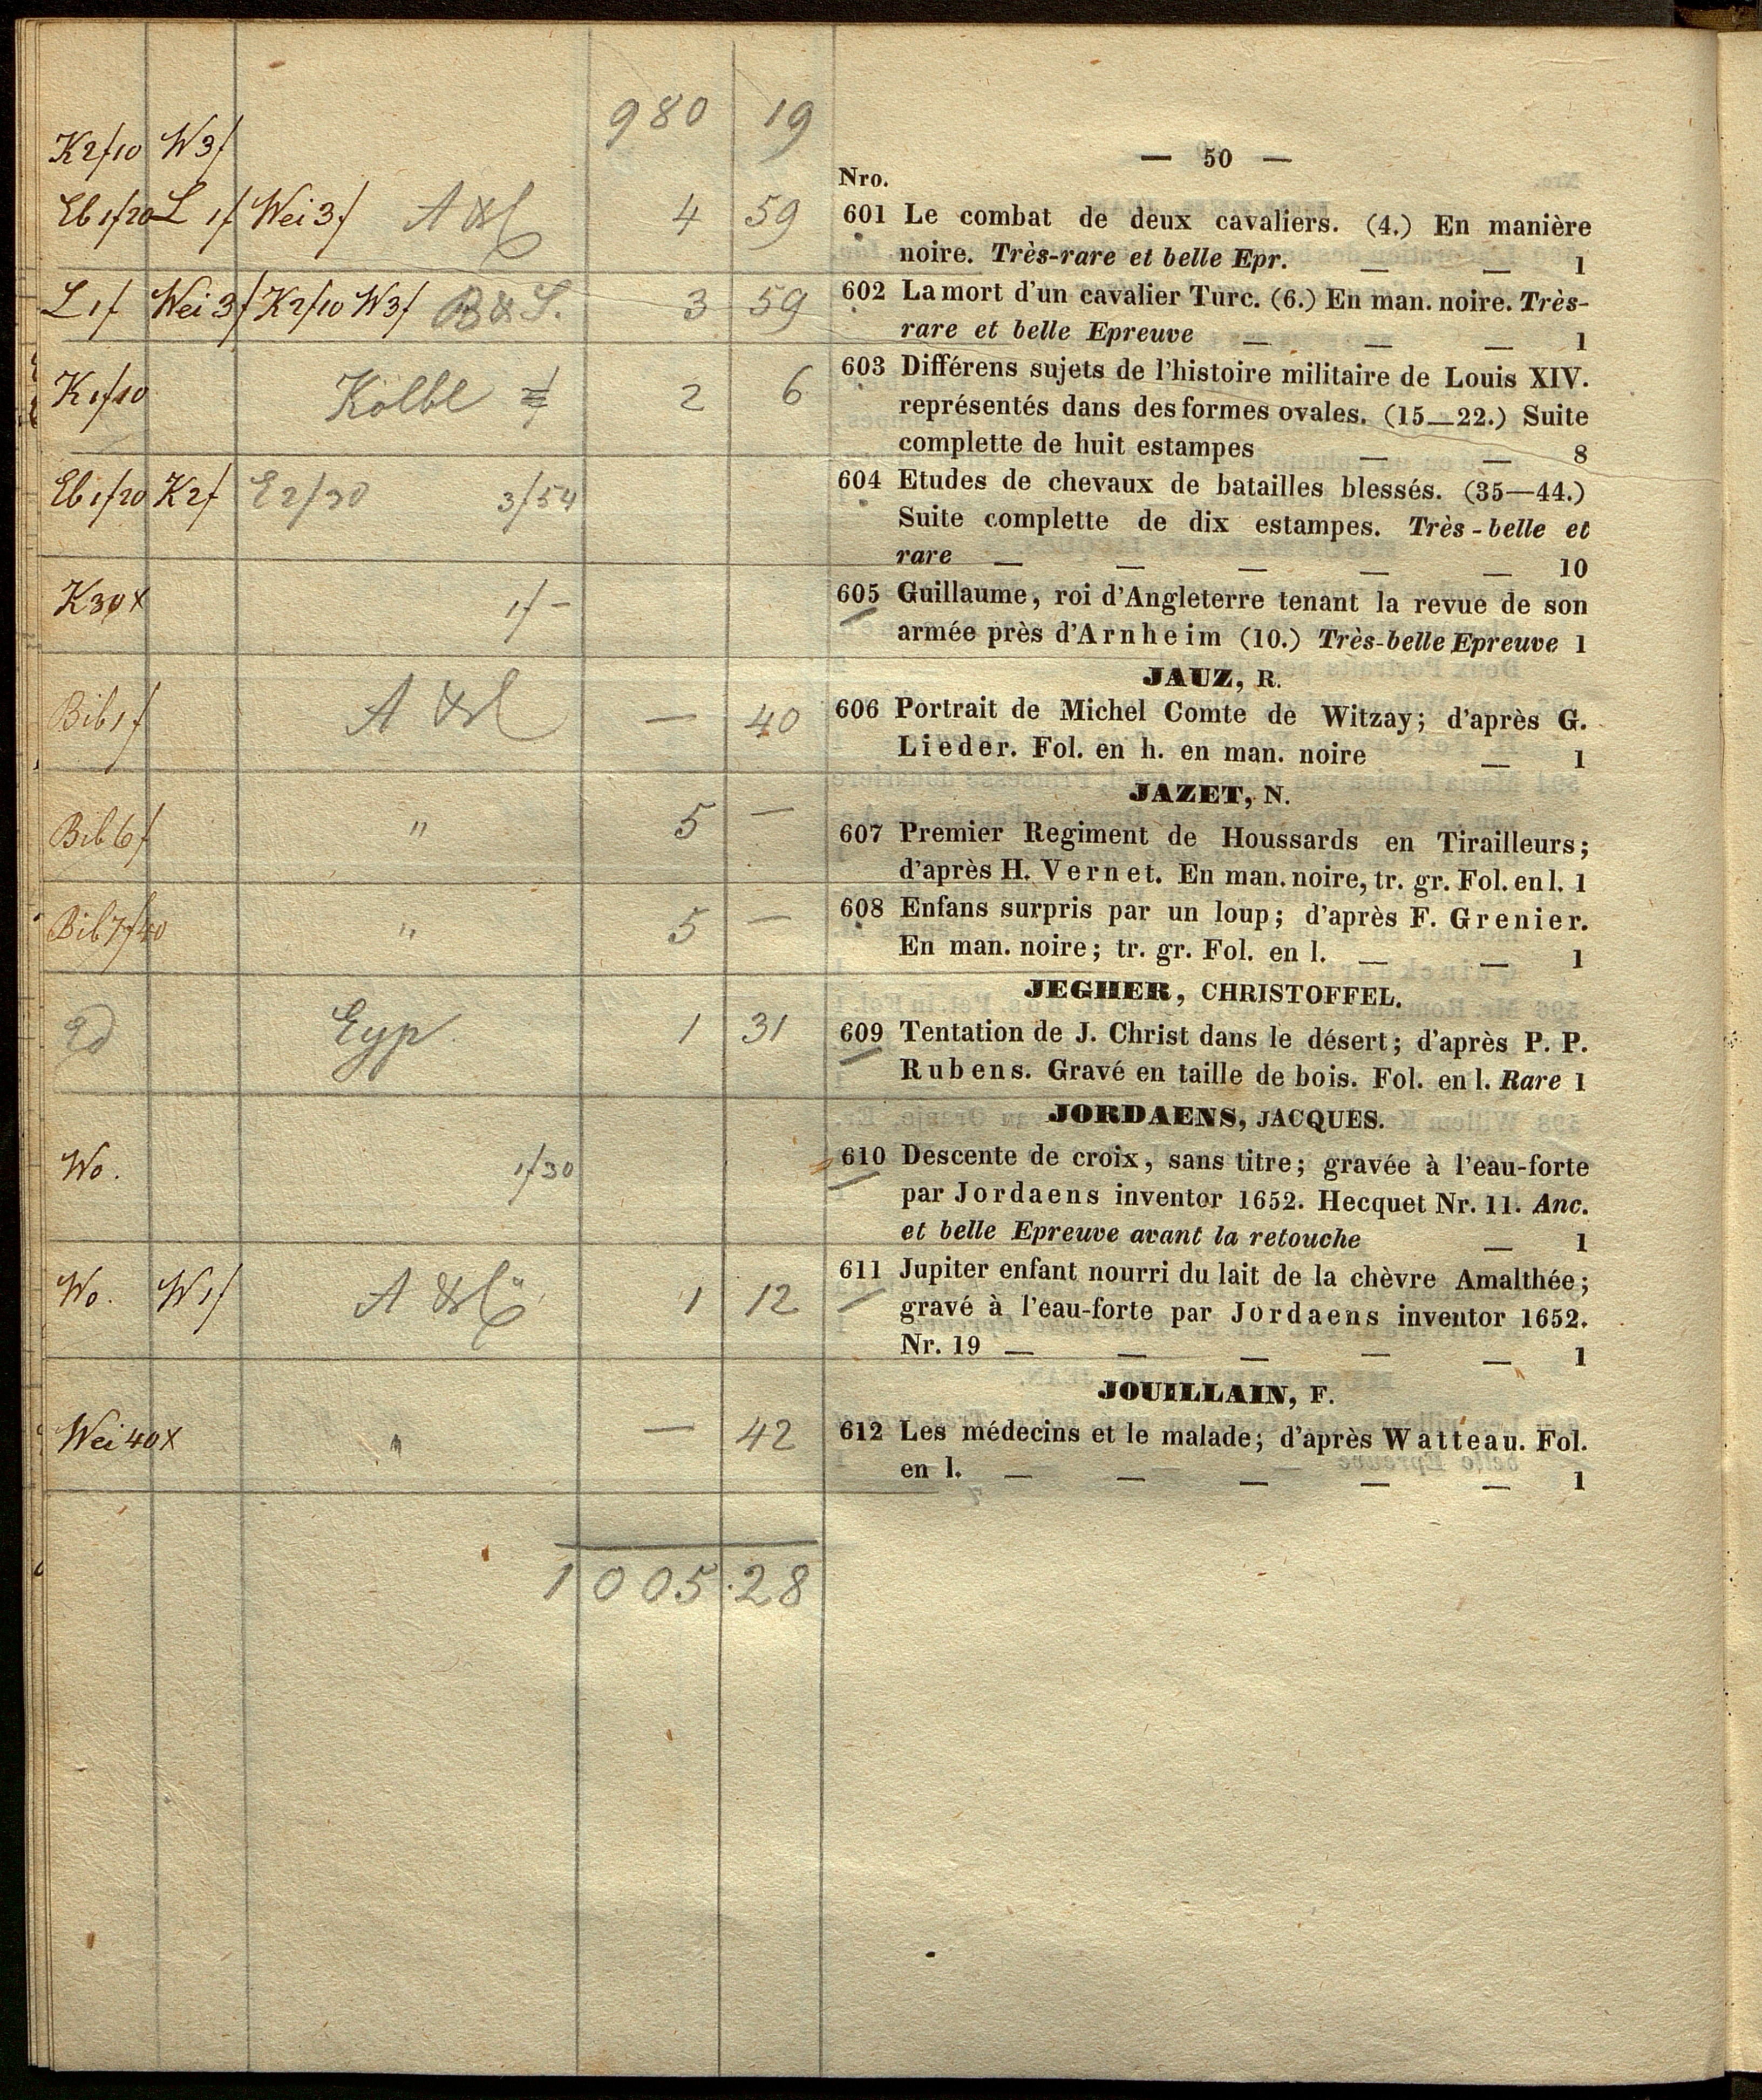 980 19
— 50 —
K2f10 W3f
Nro.
Eb1f20 L 1f Wei3f A 4 59
601 Le combat de deux cavaliers. (4.) En manière
noire. Très-rare et belle Epr. — — 1
L1f Wei3f K2f10 W3f B&S. 3 59
602 La mort d'un cavalier Turc. (6.) En man. noire. Très-
rare et belle Epreuve — — — 1
K1f10 Kolbl 2 6
603 Différens sujets de l'histoire militaire de Louis XIV.
représentés dans des formes ovales. (15—22.) Suite
complette de huit estampes — — 8
Eb1f20 K2f E2/30 3/54
604 Etudes de chevaux de batailles blessés. (35—44.)
Suite complette de dix estampes. Très-belle et
rare — — — — — 10
K30x 1f —
605 Guillaume, roi d'Angleterre tenant la revue de son
armée près d'Arnheim (10.) Très-belle Epreuve 1
JAUZ, R.
Bib1f A — 40
606 Portrait de Michel Comte de Witzay; d'après G.
Lieder. Fol. en h. en man. noire — 1
JAZET, N.
Bib6f " 5 —
607 Premier Regiment de Houssards en Tirailleurs;
d'après H. Vernet. En man. noire, tr. gr. Fol. en l. 1
Bib7f40 " 5 —
608 Enfans surpris par un loup; d'après F. Grenier.
En man. noire; tr. gr. Fol. en l. — — 1
JEGHER, CHRISTOFFEL.
Eyp 1 31
609 Tentation de J. Christ dans le désert; d'après P. P.
Rubens. Gravé en taille de bois. Fol. en l. Rare 1
JORDAENS, JACQUES.
Wo. 1f30
610 Descente de croix, sans titre; gravée à l'eau-forte
par Jordaens inventor 1652. Hecquet Nr. 11. Anc.
et belle Epreuve avant la retouche — 1
Wo. W1f A 1 12
611 Jupiter enfant nourri du lait de la chèvre Amalthée;
gravé à l'eau-forte par Jordaens inventor 1652.
Nr. 19 — — — — — 1
JOUILLAIN, F.
Wei40x " — 42
612 Les médecins et le malade; d'après Watteau. Fol.
en l. — — — — — 1
1005.28